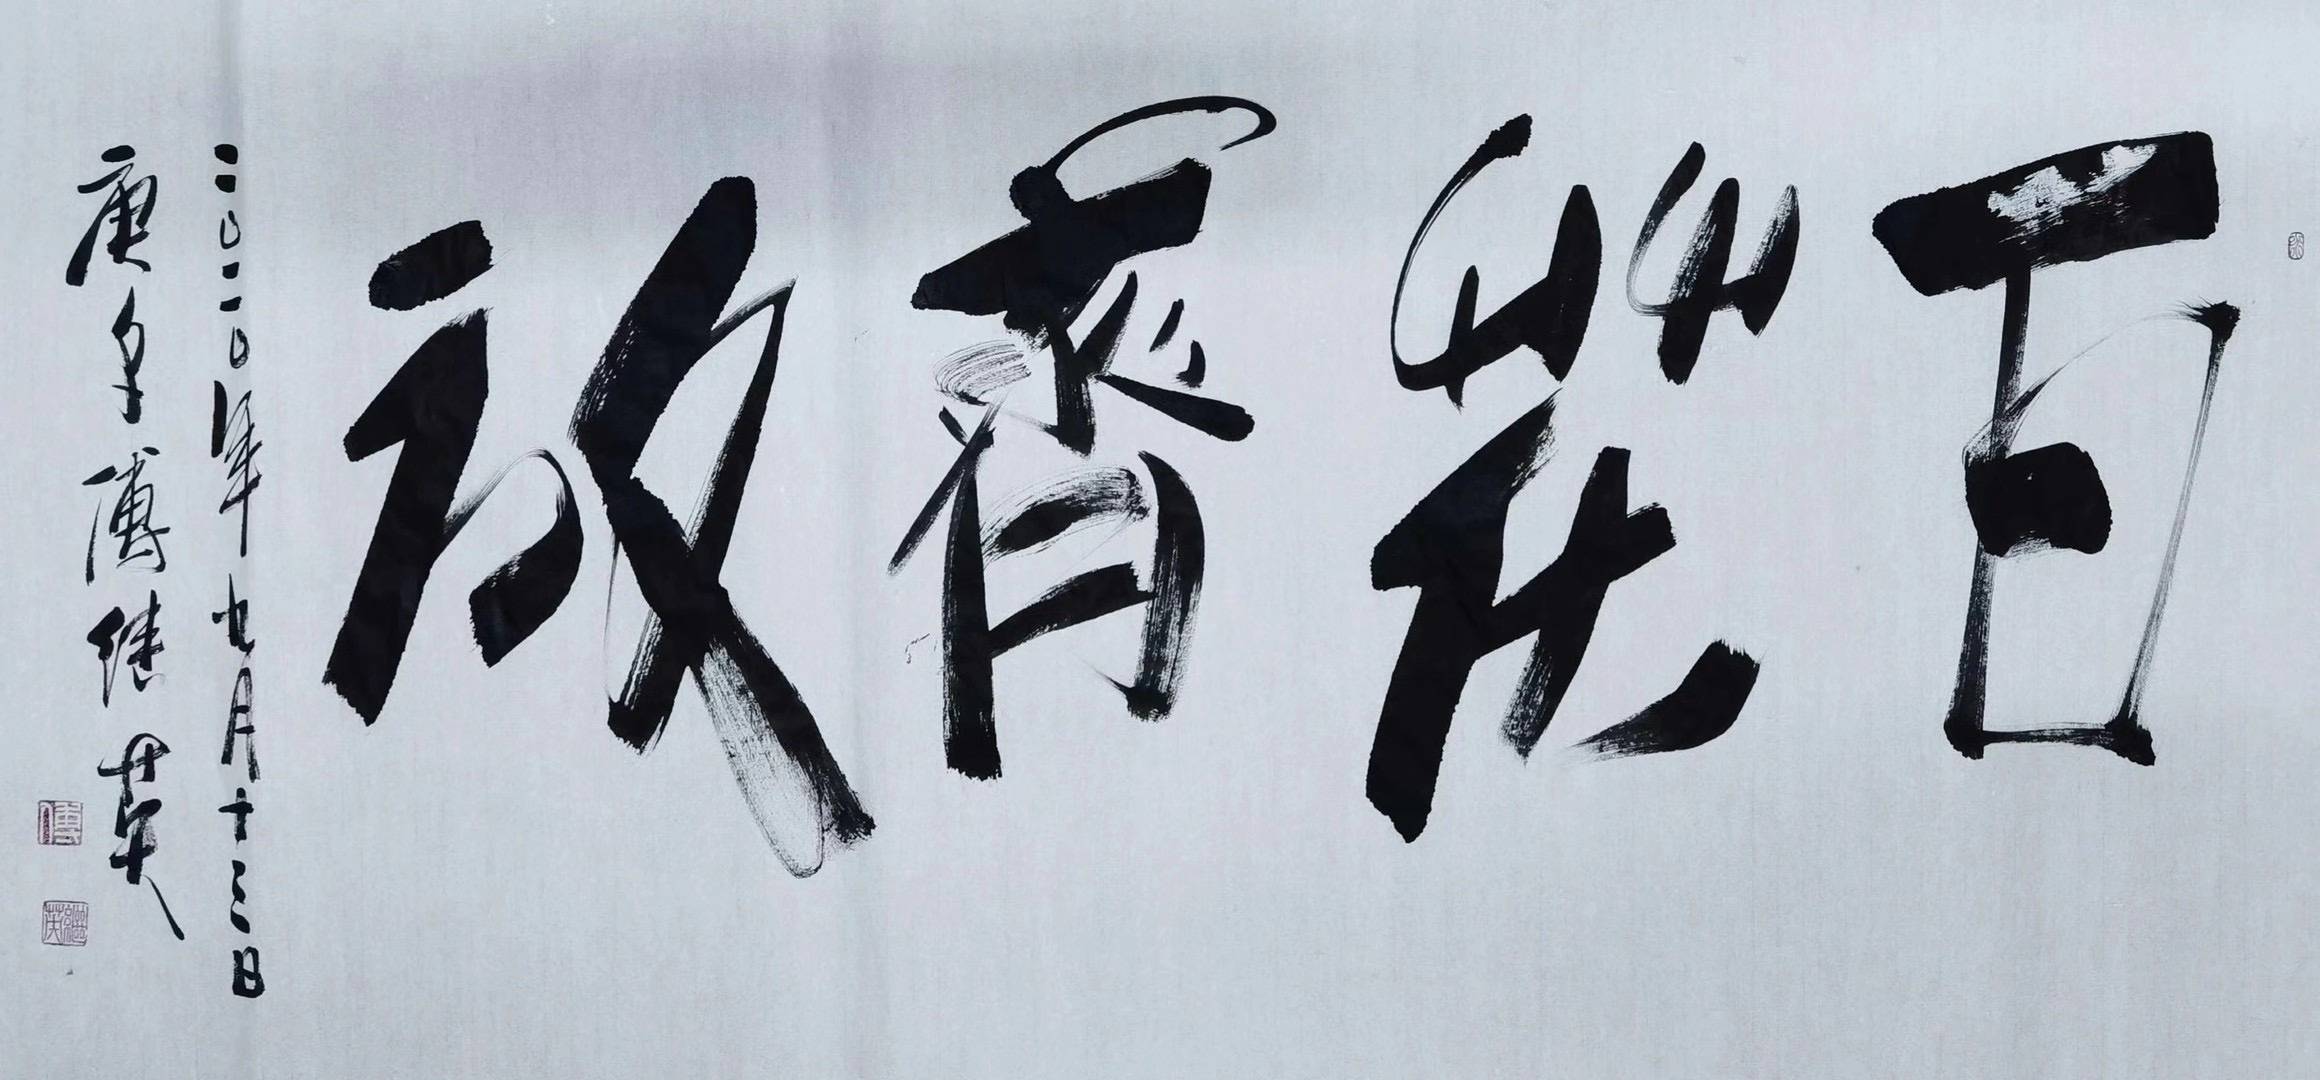 百花齊放
二〇二〇年七月十三日
庚子傅继英